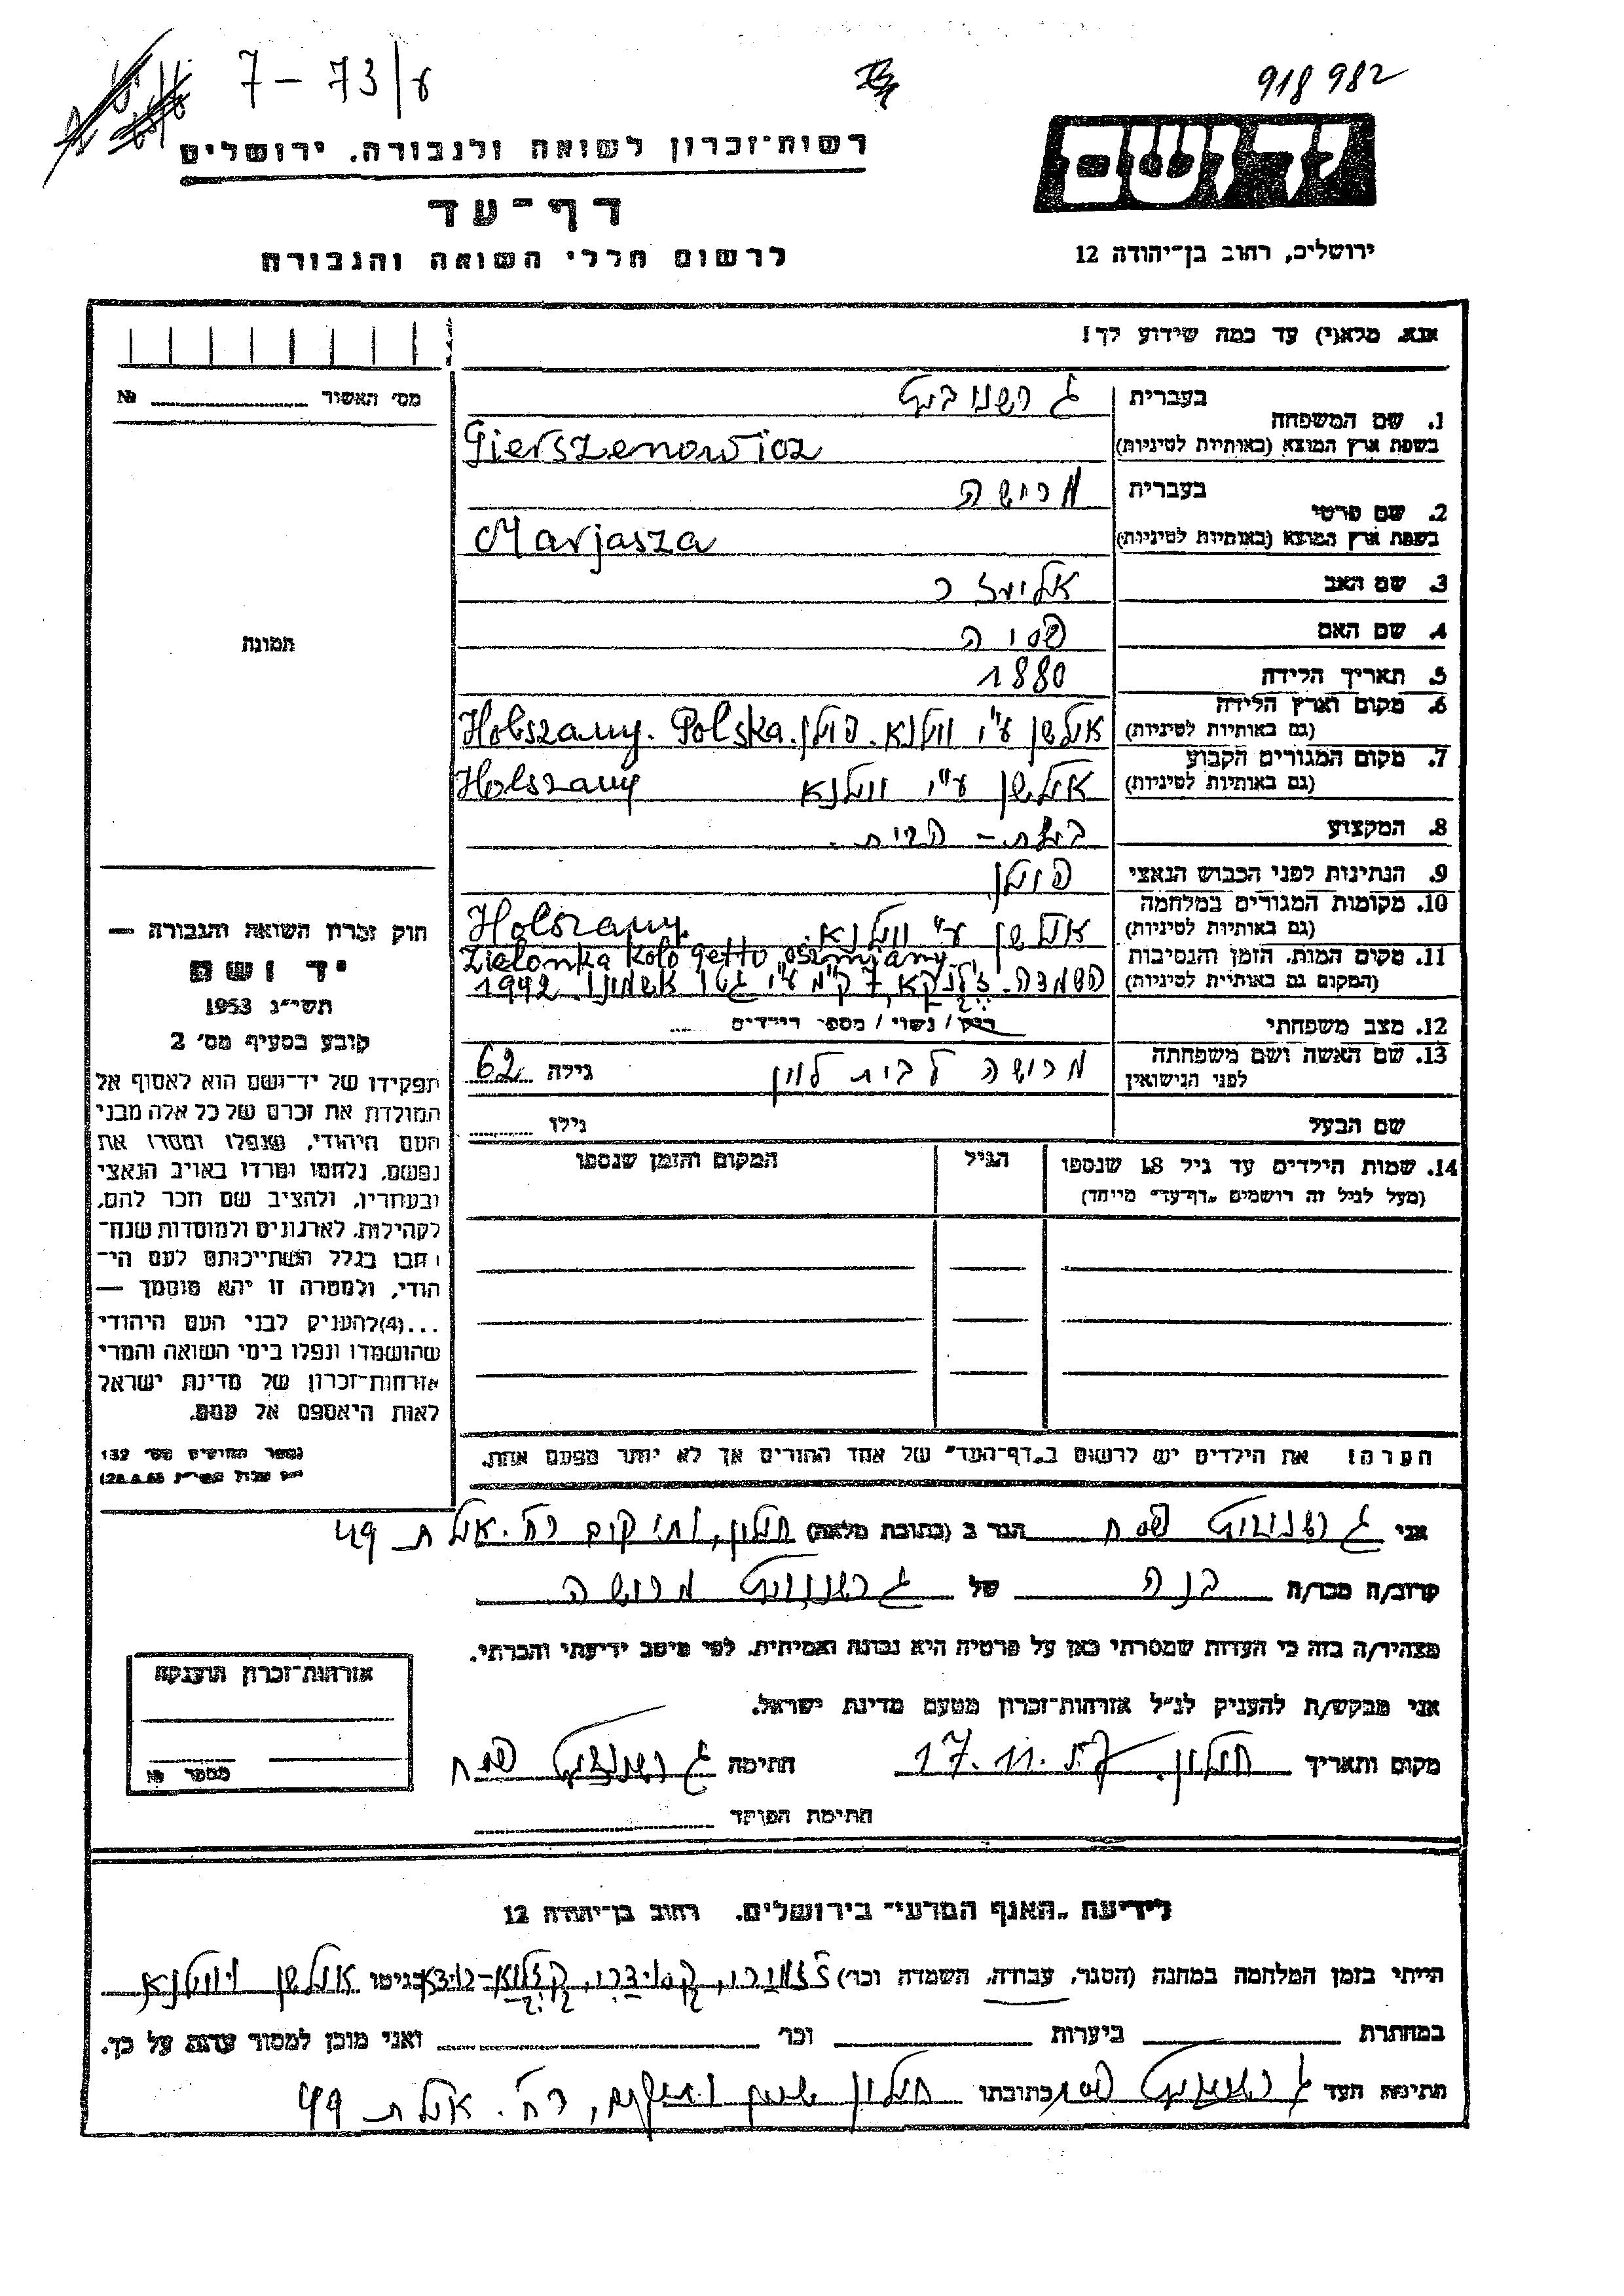 7 - 73/8
918982
רשות־זכרון לשואה ולגבורה, ירושלים
יד ושם
דף־עד
לרשום חללי השואה והגבורה
ירושלים, רחוב בן־יהודה 12
אנא, מלא(י) עד כמה שידוע לך!
מס׳ האשור № 
בעברית
1. שם המשפחה
בשפת ארץ המוצא (באותיות לטיניות)
Gierszenowicz
בעברית
2. שם פרטי
בשפת ארץ המוצא (באותיות לטיניות)
מרישה
Marjasza
3. שם האב
אליעזר
4. שם האם
פסיה
5. תאריך הלידה
1880
6. מקום וארץ הלידה
(גם באותיות לטיניות)
אולשן ע"י ווילנא. פולין. Holszany. Polska
7. מקום המגורים הקבוע
(גם באותיות לטיניות)
אולשן ע"י ווילנא Holszany
8. המקצוע
בעלת - הבית.
9. הנתינות לפני הכבוש הנאצי
פולין
10. מקומות המגורים במלחמה
(גם באותיות לטיניות)
אולשן ע"י ווילנא. Holszany.
11. מקום המות, הזמן והנסיבות
(המקום גם באותיות לטיניות)
Zielonka koło getto oszmiany.
השמדה. 7 ק"מ ע"י גטו 1942
12. מצב משפחתי
רוק/נשוי/מספר הילדים
13. שם האשה ושם משפחתה
לפני הנישואין
מרישה לבית לוין גילה 62
שם הבעל גילו
14. שמות הילדים עד גיל 18 שנספו
(מעל לגיל זה רושמים „דף־עד" מיוחד)
הגיל
המקום והזמן שנספו
הערה! את הילדים יש לרשום ב„דף־העד" של אחד ההורים אך לא יותר מפעם אחת.
תמונה
חוק זכרון השואה והגבורה —
יד ושם
תשי״ג 1953
קובע בסעיף מס׳ 2
תפקידו של יד־ושם הוא לאסוף אל
המולדת את זכרם של כל אלה מבני
העם היהודי, שנפלו ומסרו את
נפשם, נלחמו ומרדו באויב הנאצי
ובעוזריו, ולהציב שם וזכר להם,
לקהילות, לארגונים ולמוסדות שנח־
רבו בגלל השתייכותם לעם הי־
הודי, ולמטרה זו יהא מוסמך —
...(4)להעניק לבני העם היהודי
שהושמדו ונפלו בימי השואה והמרי
אזרחות־זכרון של מדינת ישראל
לאות היאספם אל עמם.
אני גרשנוביץ פסח הגר ב (כתובת מלאה) חולון, רח. אילת 49
קרוב/ה מכר/ה בנה של גרשנוביץ מרישה
מצהיר/ה בזה כי העדות שמסרתי כאן על פרטיה היא נכונה ואמיתית, לפי מיטב ידיעתי והכרתי.
אני מבקש/ת להעניק לנ״ל אזרחות־זכרון מטעם מדינת ישראל.
מקום ותאריך חולון, 17. 11. 57 חתימה גרשנוביץ פסח
חתימת הפוקד
אזרחות־זכרון הוענקה
מספר №
לידיעת „האגף המדעי" בירושלים, רחוב בן־יהודה 12
הייתי בזמן המלחמה במחנה (הסגר, עבודה, השמדה וכו׳) בגיטו אולשן ווילנא
במחתרת ביערות וכו׳ ואני מוכן למסור עדות על כך.
חתימת העד גרשנוביץ פסח כתובתו חולון, רח. אילת 49